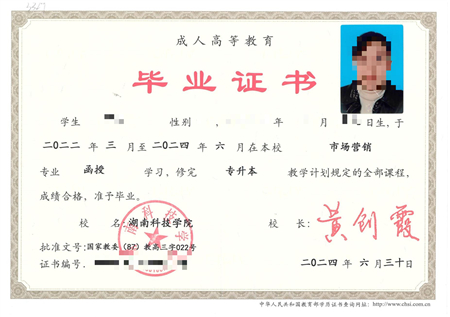 成人高等教育
毕业证书
学生 性别 月 日生,于
二〇二二 年 三 月至 二〇二四 年 六 月在本校 市场营销
专业 函授 学习,修完 专升本 教学计划规定的全部课程,
成绩合格,准予毕业。
校 名:湖南科技学院 校 长: 黄创霞
批准文号:国家教委(87)教高三字022号
证书编号. 二〇二四 年 六 月三十日
中华人民共和国教育部学历证书查询网址: http://www.chsi.com.cn